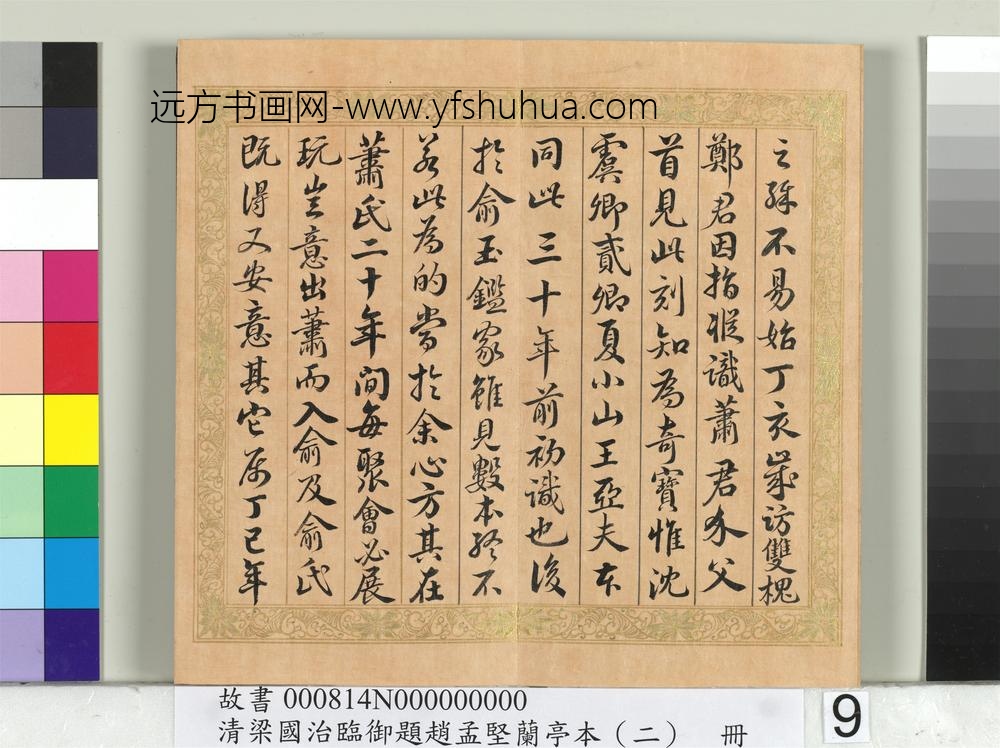 远方书画网-www.yfshuhua.com
之殊不易始丁亥歲訪雙槐
鄭君因指識蕭君父
首見此刻知為奇寶惟沈
虞卿貳卿夏小山王亞夫本
同此三十年前初識也後
於俞玉鑑家雖見數本終不
若此為的當於余心方其在
蕭氏二十年間每聚會必展
玩豈意出蕭而入俞及俞氏
既得又安意其它屬丁巳年
故書 000814N000000000
清梁國治臨御題趙孟堅蘭亭本（二） 冊
9